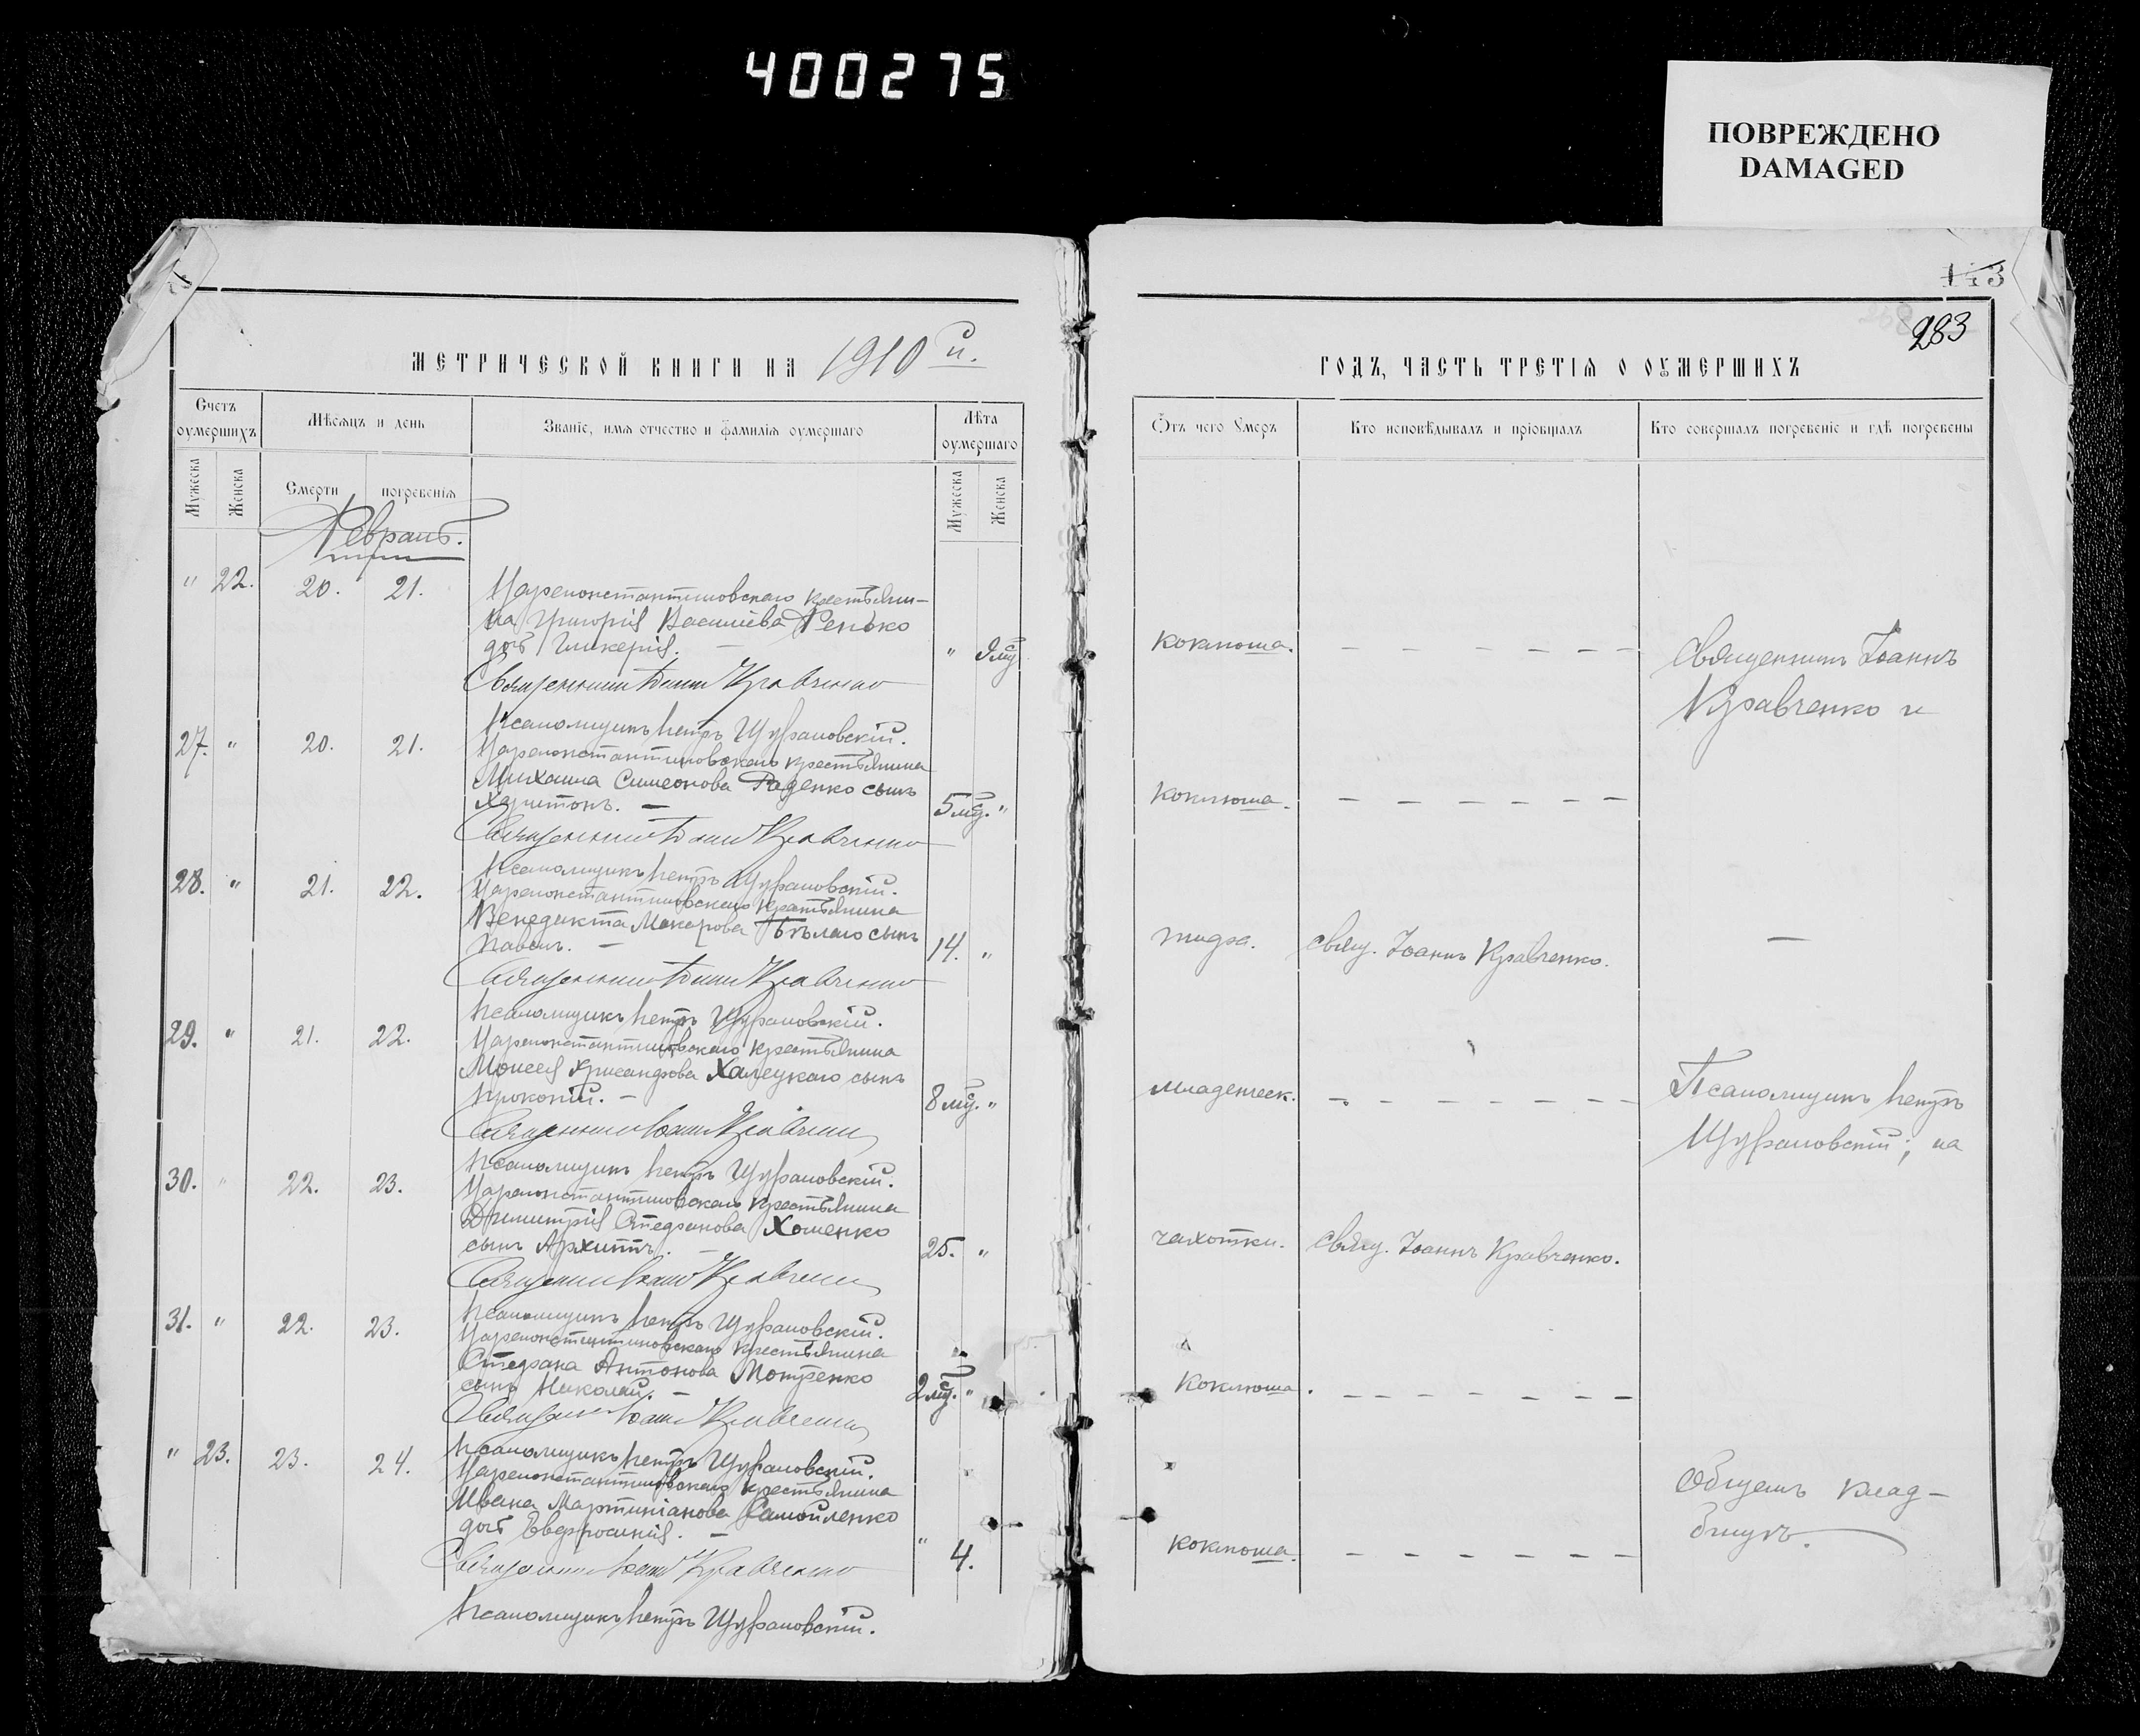 400275
ПОВРЕЖДЕНО
DAMAGED
143
283
МЕТРИЧЕСКОЙ КНИГИ НА 1910 й.
ГОДЪ, ЧАСТЬ ТРЕТІЯ О ОУМЕРШИХЪ
Счетъ оумершихъ
Мѣсяцъ и день
Званіе, имя отчество и фамилія оумершаго
Лѣта оумершаго
Отъ чего Умеръ
Кто исповѣдывалъ и пріобщалъ
Кто совершалъ погребеніе и гдѣ погребены
Мужеска
Женска
Смерти
погребенія
Мужеска
Женска
Февраль.
" 22. 20. 21. Цареконстантиновскаго крестьяни-
на Григорія Васильева Ренько
дочь Гликерія. — " 9 мц коклюша. — — — — — —
Священникъ Іоаннъ Кравченко
Псаломщикъ Петръ Щуфановскій.
27. " 20. 21. Цареконстантиновскаго крестьянина
Михаила Симеонова Раденко сынъ
Харитонъ. — 5 мц. " коклюша. — — — — — — —
Священникъ Іоаннъ Кравченко
Псаломщикъ Петръ Щуфановскій.
28. " 21. 22. Цареконстантиновскаго крестьянина
Венедикта Макарова Бѣлаго сынъ
Павелъ. — 14. " тифа. свящ. Іоаннъ Кравченко. —
Священникъ Іоаннъ Кравченко
Псаломщикъ Петръ Щуфановскій.
29. " 21. 22. Цареконстантиновскаго крестьянина
Моисея Хрисанфова Халецкаго сынъ
Прокопій. — 8 мц. " младенческ. — — — — — — —
Священникъ Іоаннъ Кравченко
Псаломщикъ Петръ Щуфановскій.
30. " 22. 23. Цареконстантиновскаго крестьянина
Димитрія Стефанова Хоменко
сынъ Архиппъ. — 25. " чахотки. свящ. Іоаннъ Кравченко.
Священникъ Іоаннъ Кравченко
Псаломщикъ Петръ Щуфановскій.
31. " 22. 23. Цареконстантиновскаго крестьянина
Стефана Антонова Мотренко
сынъ Николай. — 2 мц. " коклюша. — — — — — — —
Священникъ Іоаннъ Кравченко
Псаломщикъ Петръ Щуфановскій.
" 23. 23. 24. Цареконстантиновскаго крестьянина
Ивана Мартиніанова Самойленко
дочь Евфросинія. — " 4. коклюша. — — — — — —
Священникъ Іоаннъ Кравченко
Псаломщикъ Петръ Щуфановскій.
Священникъ Іоаннъ
Кравченко и
Псаломщикъ Петръ
Щуфановскій; на
общемъ клад-
бищѣ.